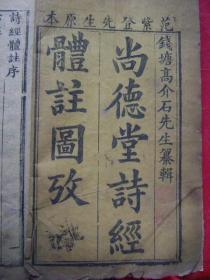 范紫登先生原本
錢塘高介石先生纂輯
尚德堂詩經
體註圖攷
詩經體註序